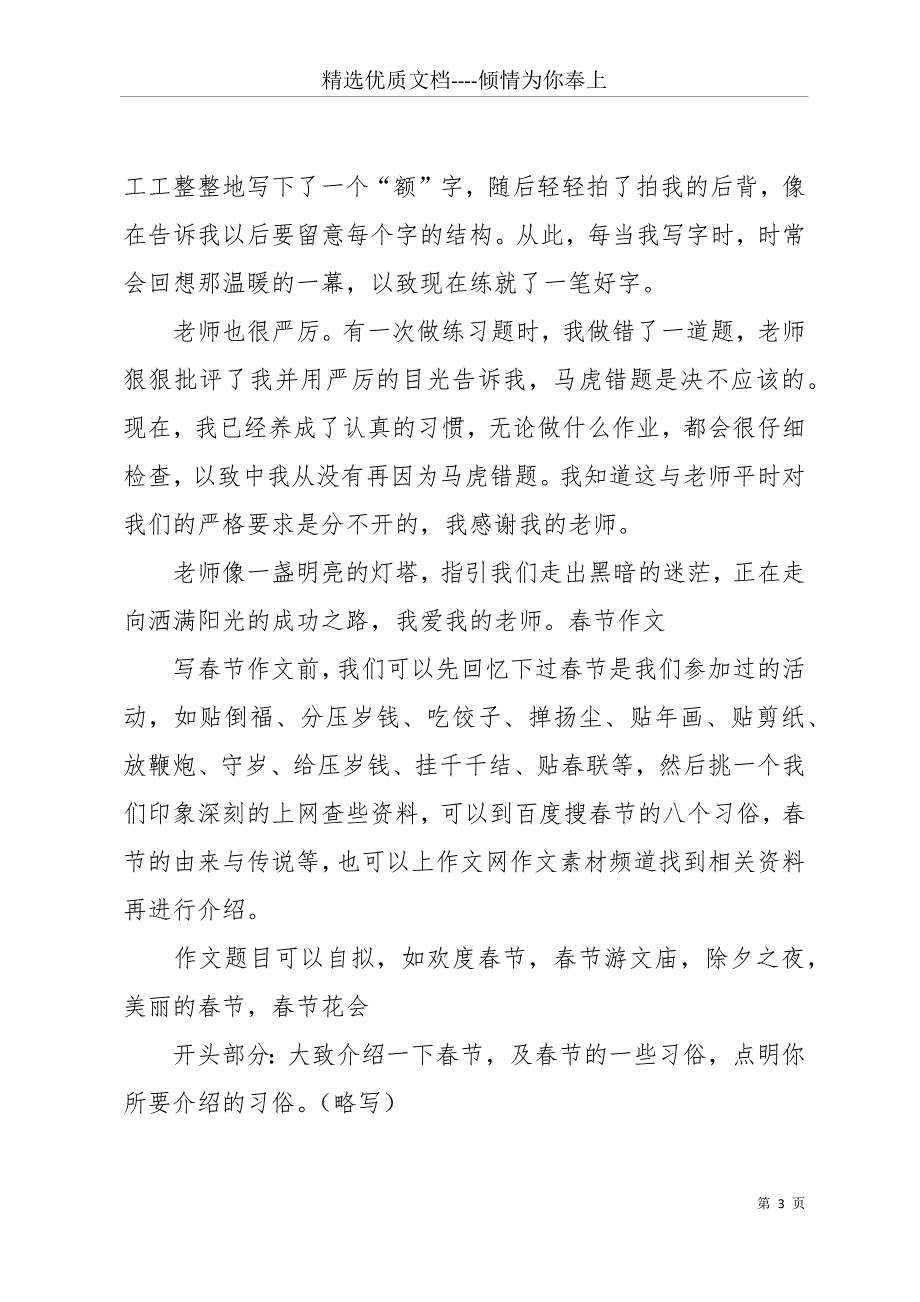 精选优质文档----倾情为你奉上
工工整整地写下了一个“额”字，随后轻轻拍了拍我的后背，像
在告诉我以后要留意每个字的结构。从此，每当我写字时，时常
会回想那温暖的一幕，以致现在练就了一笔好字。
老师也很严厉。有一次做练习题时，我做错了一道题，老师
狠狠批评了我并用严厉的目光告诉我，马虎错题是决不应该的。
现在，我已经养成了认真的习惯，无论做什么作业，都会很仔细
检查，以致中我从没有再因为马虎错题。我知道这与老师平时对
我们的严格要求是分不开的，我感谢我的老师。
老师像一盏明亮的灯塔，指引我们走出黑暗的迷茫，正在走
向洒满阳光的成功之路，我爱我的老师。春节作文
写春节作文前，我们可以先回忆下过春节是我们参加过的活
动，如贴倒福、分压岁钱、吃饺子、掸扬尘、贴年画、贴剪纸、
放鞭炮、守岁、给压岁钱、挂千千结、贴春联等，然后挑一个我
们印象深刻的上网查些资料，可以到百度搜春节的八个习俗，春
节的由来与传说等，也可以上作文网作文素材频道找到相关资料
再进行介绍。
作文题目可以自拟，如欢度春节，春节游文庙，除夕之夜，
美丽的春节，春节花会
开头部分：大致介绍一下春节，及春节的一些习俗，点明你
所要介绍的习俗。（略写）
第 3 页